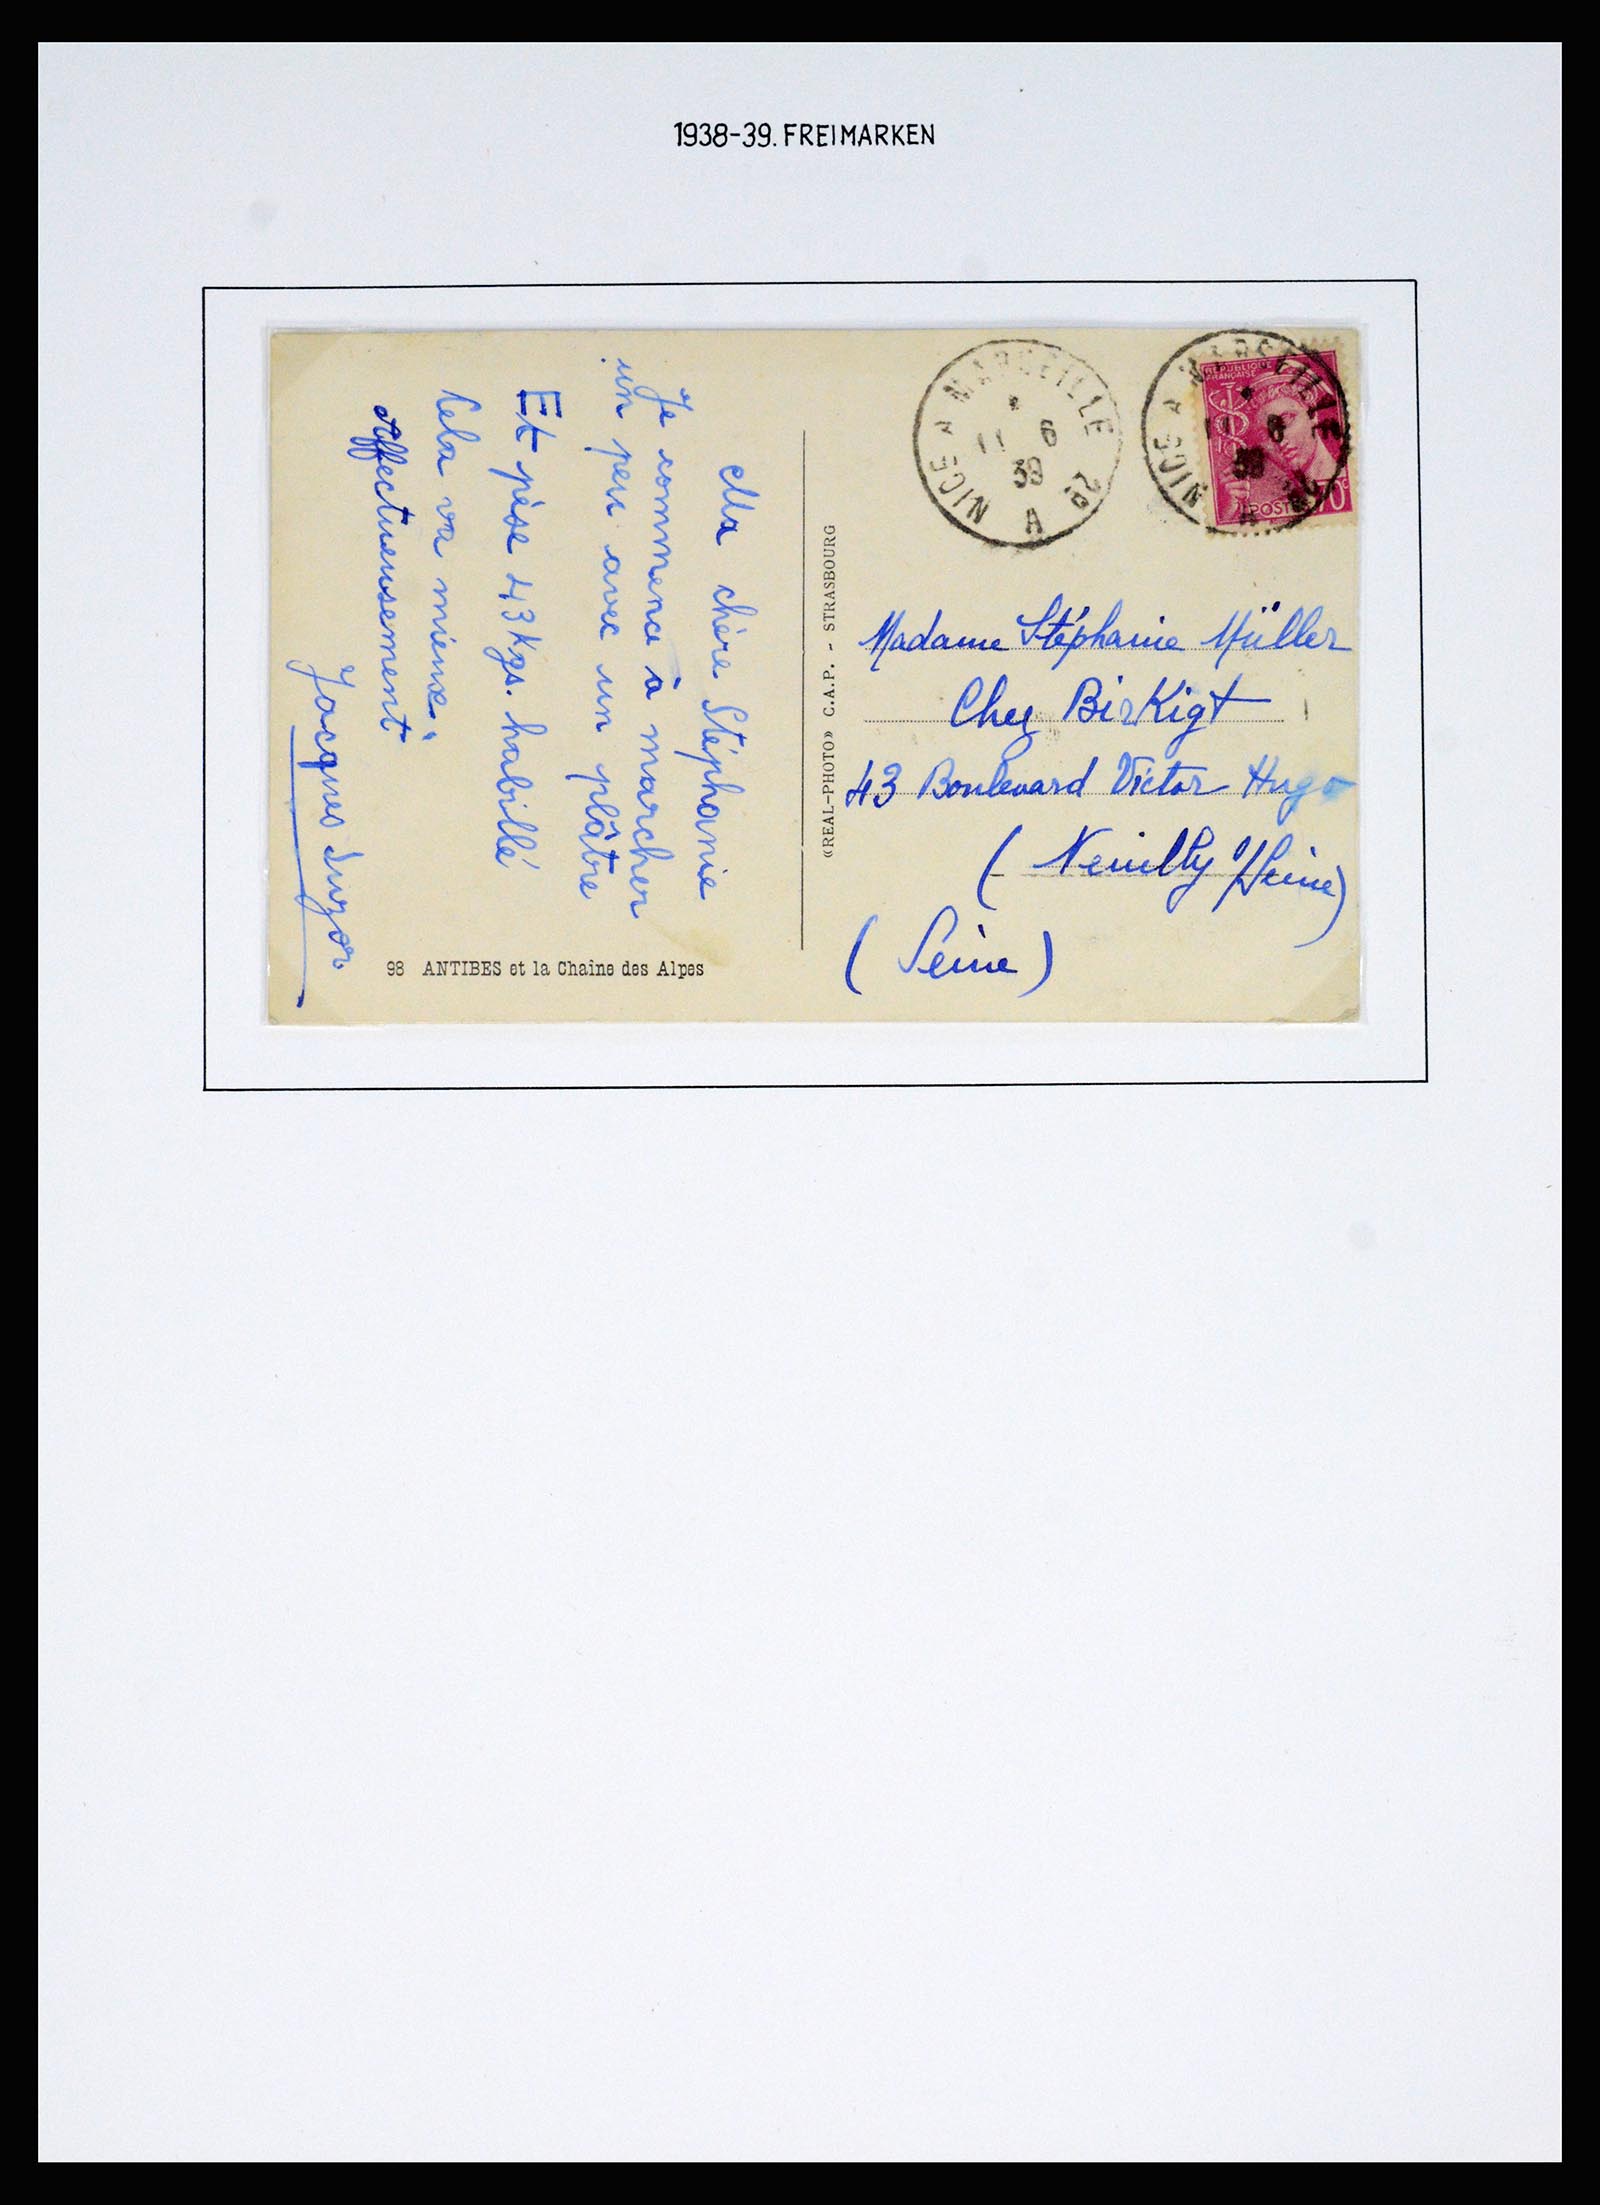 1938-39. FREIMARKEN
Ma chère Stéphanie
Je commence à marcher
un peu avec un plâtre
Et pèse 43 Kgs. habillé
Cela va mieux.
Affectueusement
Jacques Suzor
98 ANTIBES et la Chaîne des Alpes
«REAL-PHOTO» C.A.P. - STRASBOURG
NICE A MARSEILLE
11 6
39
A
NICE A MARSEILLE
11 6
39
A
REPUBLIQUE
FRANÇAISE
POSTES
70c
Madame Stéphanie Müller
Chez BirKigt
43 Boulevard Victor Hugo
( Neuilly s/Seine)
( Seine )